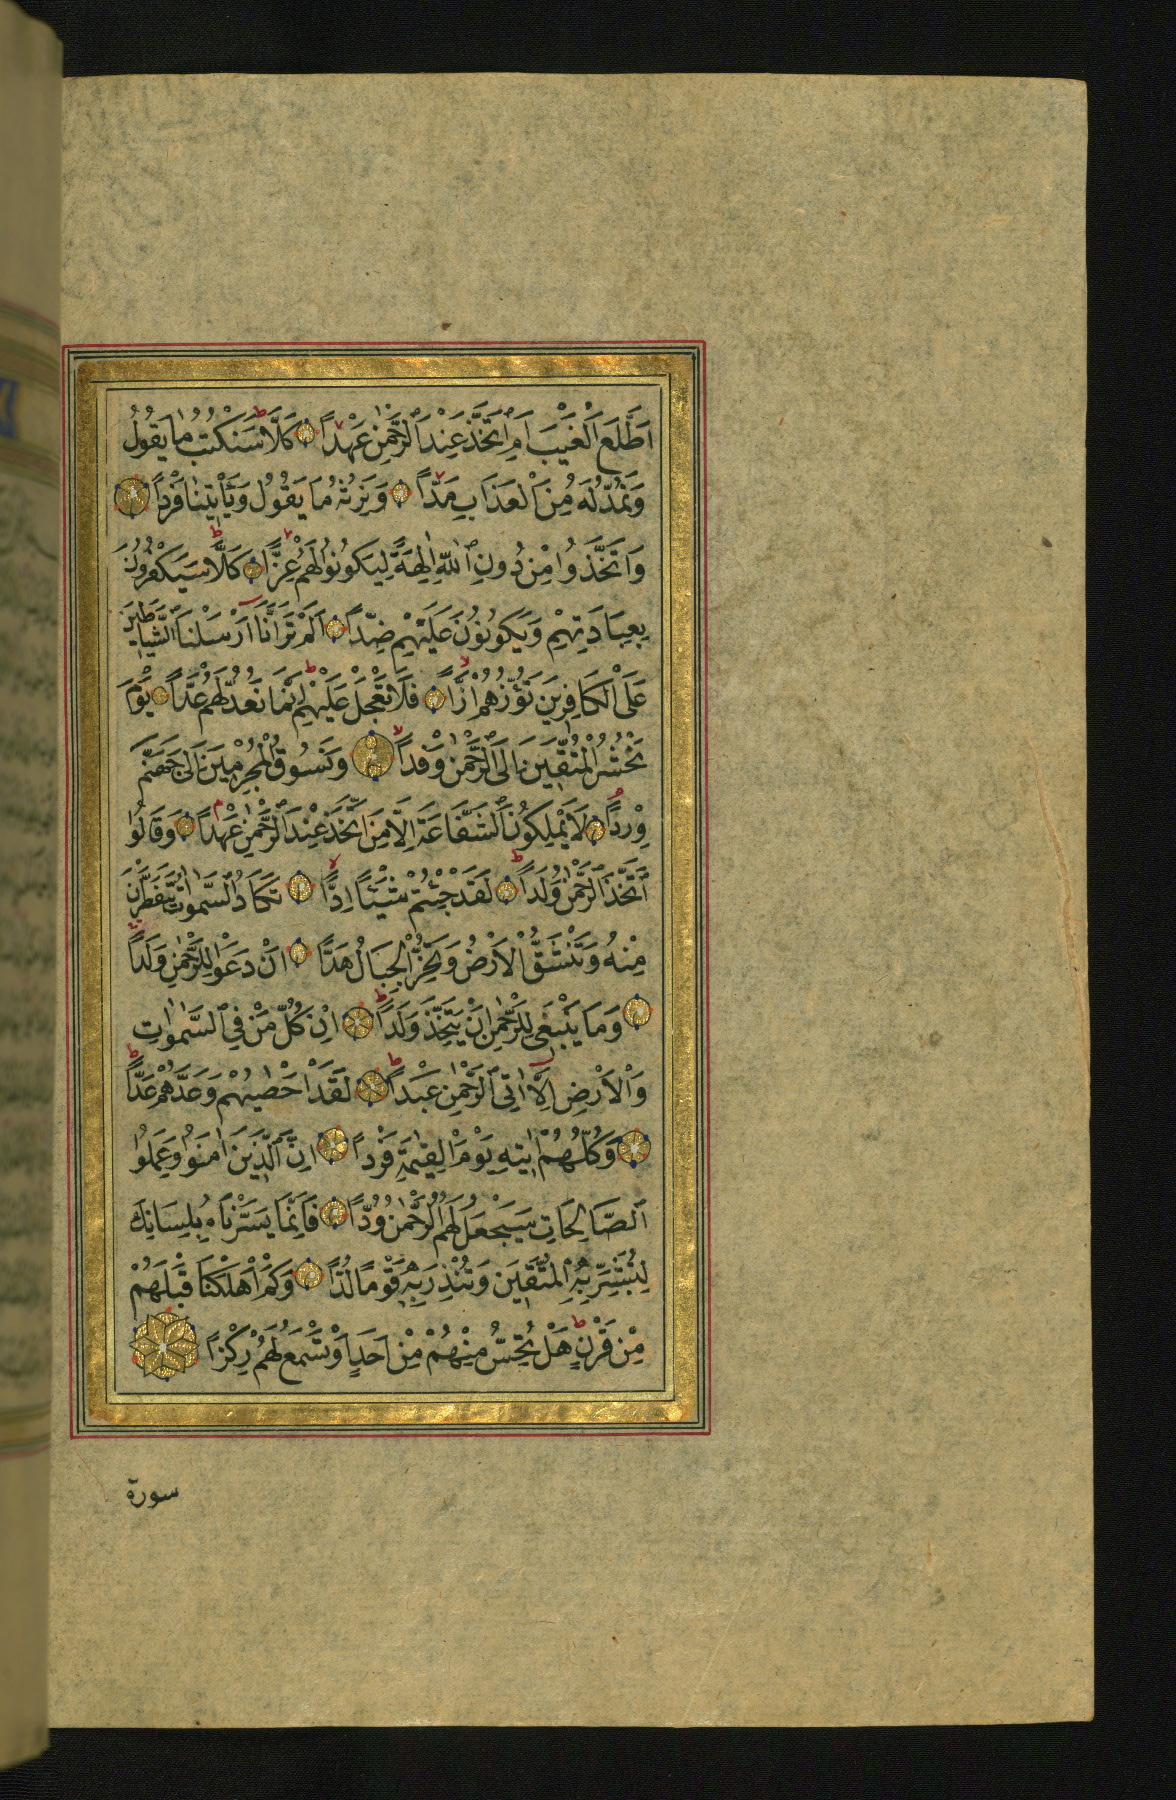 اَطَّلَعَ الْغَيْبَ اَمِ اتَّخَذَ عِنْدَ الرَّحْمٰنِ عَهْدًا كَلَّا سَنَكْتُبُ مَا يَقُولُ
وَنَمُدُّ لَهُ مِنَ الْعَذَابِ مَدًّا وَنَرِثُهُ مَا يَقُولُ وَيَأْتِينَا فَرْدًا
وَاتَّخَذُوا مِنْ دُونِ اللّٰهِ اٰلِهَةً لِيَكُونُوا لَهُمْ عِزًّا كَلَّا سَيَكْفُرُونَ
بِعِبَادَتِهِمْ وَيَكُونُونَ عَلَيْهِمْ ضِدًّا اَلَمْ تَرَ اَنَّا اَرْسَلْنَا الشَّيَاطِينَ
عَلَى الْكَافِرِينَ تَؤُزُّهُمْ اَزًّا فَلَا تَعْجَلْ عَلَيْهِمْ اِنَّمَا نَعُدُّ لَهُمْ عَدًّا يَوْمَ
نَحْشُرُ الْمُتَّقِينَ اِلَى الرَّحْمٰنِ وَفْدًا وَنَسُوقُ الْمُجْرِمِينَ اِلٰى جَهَنَّمَ
وِرْدًا لَا يَمْلِكُونَ الشَّفَاعَةَ اِلَّا مَنِ اتَّخَذَ عِنْدَ الرَّحْمٰنِ عَهْدًا وَقَالُوا
اتَّخَذَ الرَّحْمٰنُ وَلَدًا لَقَدْ جِئْتُمْ شَيْئًا اِدًّا تَكَادُ السَّمٰوَاتُ يَتَفَطَّرْنَ
مِنْهُ وَتَنْشَقُّ الْاَرْضُ وَتَخِرُّ الْجِبَالُ هَدًّا اَنْ دَعَوْا لِلرَّحْمٰنِ وَلَدًا
وَمَا يَنْبَغِي لِلرَّحْمٰنِ اَنْ يَتَّخِذَ وَلَدًا اِنْ كُلُّ مَنْ فِي السَّمٰوَاتِ
وَالْاَرْضِ اِلَّا اٰتِي الرَّحْمٰنِ عَبْدًا لَقَدْ اَحْصٰيهُمْ وَعَدَّهُمْ عَدًّا
وَكُلُّهُمْ اٰتِيهِ يَوْمَ الْقِيٰمَةِ فَرْدًا اِنَّ الَّذِينَ اٰمَنُوا وَعَمِلُوا
الصَّالِحَاتِ سَيَجْعَلُ لَهُمُ الرَّحْمٰنُ وُدًّا فَاِنَّمَا يَسَّرْنَاهُ بِلِسَانِكَ
لِتُبَشِّرَ بِهِ الْمُتَّقِينَ وَتُنْذِرَ بِهِ قَوْمًا لُدًّا وَكَمْ اَهْلَكْنَا قَبْلَهُمْ
مِنْ قَرْنٍ هَلْ تُحِسُّ مِنْهُمْ مِنْ اَحَدٍ اَوْ تَسْمَعُ لَهُمْ رِكْزًا
سورة